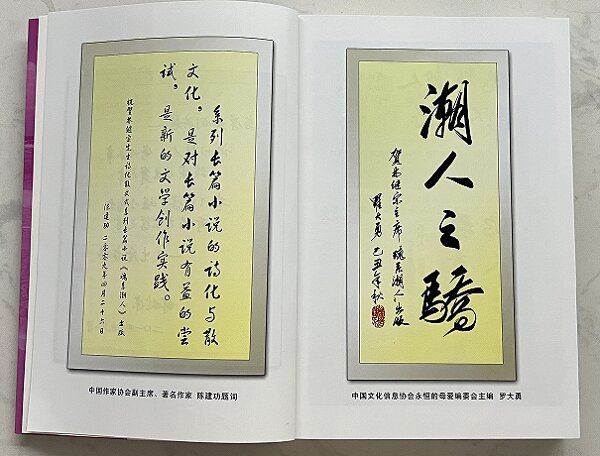 系列长篇小说的诗化与散
文化。是对长篇小说有益的尝
试。是新的文学创作实践。
祝贺继宗先生诗化散文式系列长篇小说《系潮人》出版
陈建功 二〇〇九年四月二十六日
中国作家协会副主席、著名作家 陈建功题词
潮人之驕
贺继宗主席系潮人出版
羅大勇 己丑年秋
中国文化信息协会永恒的母爱编委会主编 罗大勇